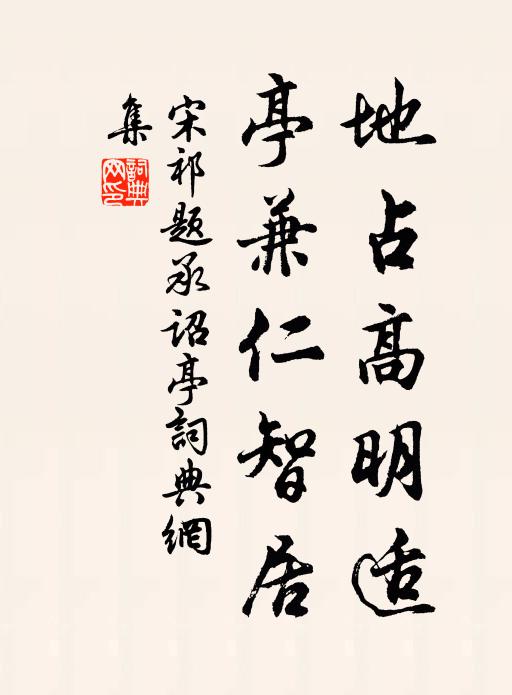 地占高明适
亭兼仁智居
宋祁题承诏亭詞典網
集
詞典網印